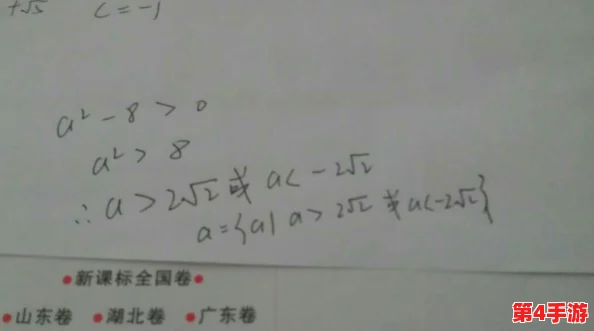 +√5 c=-1
a²-8>0
a²>8
∴a>2√2或a<-2√2
a={a|a>2√2或a<-2√2}
●新课标全国卷●
●山东卷 ●湖北卷 ●广东卷
第4手游